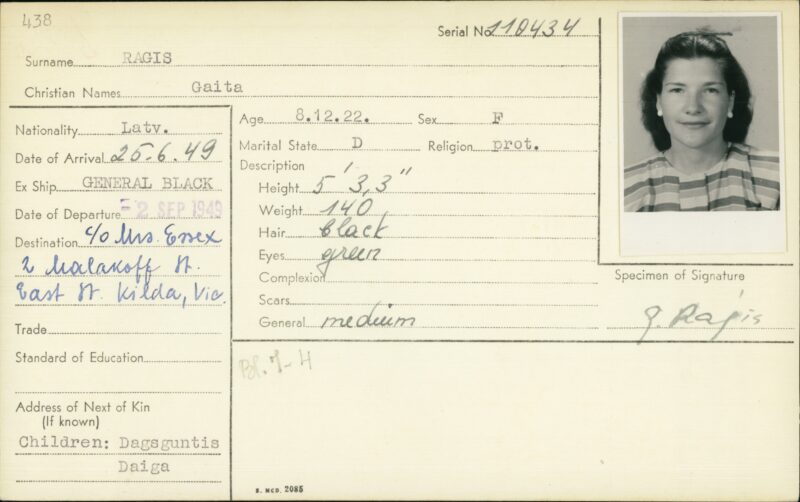 438
Serial No. 110434
Surname RAGIS
Christian Names Gaita
Nationality Latv.
Date of Arrival 25.6.49
Ex Ship GENERAL BLACK
Date of Departure - 2 SEP 1949
Destination c/o Mrs. Essex
2 Malakoff St.
East St. Kilda, Vic.
Trade
Standard of Education
Address of Next of Kin
(If known)
Children: Dagsguntis
Daiga
Age 8.12.22. Sex F
Marital State D Religion prot.
Description
Height 5' 3,3"
Weight 140
Hair black
Eyes green
Complexion
Scars
General medium
Specimen of Signature
G. Ragis
Bl. 7-4
S. MCD. 2085